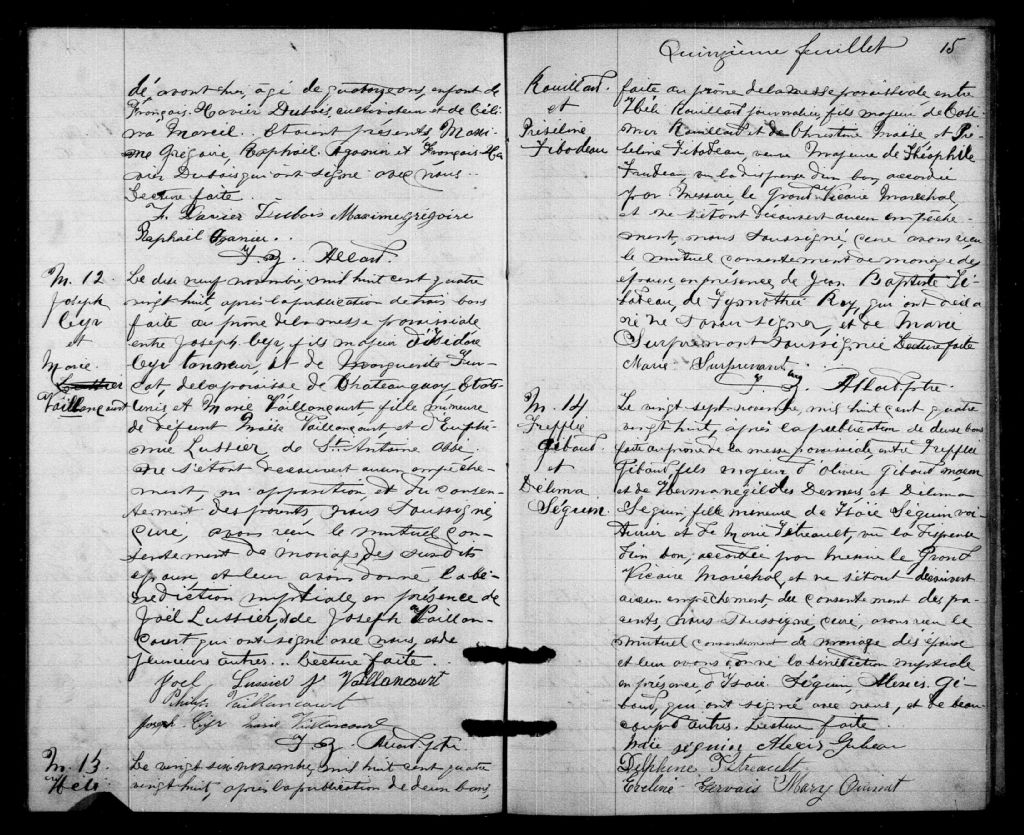 dé avant hier, âgé de quatorze ans, enfant de
François-Xavier Dubois, cultivateur et de Céli-
na Mareil. Etaient présents, Maxi-
me Grégoire, Raphaël Aganier et François Xa-
vier Dubois qui ont signé avec nous.
Lecture faite.
F. Xavier Dubois Maxime grégoire
Raphaël Aganier.
Allard.
M. 12.
Joseph
Cyr
et
Marie
Vaillancourt
Le dix neuf novembre, mil huit cent quatre
vingt huit, après la publication de trois bans
faite au prône de la messe paroissiale
entre Joseph Cyr, fils majeur d'Isidore
Cyr tanneur, et de Marguerite
de la paroisse de Chateauguay, Etats
Unis et Marie Vaillancourt fille mineure
de défunt Moïse Vaillancourt et d'Euphé-
mie Lussier, de St. Antoine Abbé,
ne s'étant découvert aucun empêche-
ment, ni opposition et du consen-
tement des parents, nous soussigné,
curé, avons reçu le mutuel con-
sentement de mariage des susdits
époux et leur avons donné la bé-
nédiction nuptiale en présence de
Joël Lussier, et de Joseph Vaillan-
court qui ont signé avec nous, et de
plusieurs autres... Lecture faite...
Joel Lussier Js Vaillancourt
Philip Vaillancourt
Joseph Cyr Vaillancourt
Allard ptre
M. 13
Héli
Le vingt six novembre, mil huit cent quatre
vingt huit, après la publication de deux bans,
Quinzième feuillet 15
Rouillard
et
Priseline
Tibodeau
faite au prône de la messe paroissiale entre
Héli Rouillard journalier, fils majeur de Casi-
mir Rouillard et de Christine et Pri-
seline Tibodeau, veuve majeure de Théophile
Trudeau, vu la dispense d'un ban, accordée
par Messire, le Grand Vicaire Maréchal,
et ne s'étant découvert aucun empêche-
ment, nous soussigné, curé avons reçu
le mutuel consentement de mariage des
époux, en présence de Jean Baptiste Ti-
bodeau, de Tymothée Roy, qui ont décla-
ré ne savoir signer, et de Marie
Surprenant soussignée Lecture faite
Marie Surprenant
Allard ptre.
M. 14
Trefflé
Gibaud
et
Délima
Séguin.
Le vingt sept novembre, mil huit cent quatre
vingt huit, après la publication de deux bans
faite au prône de la messe paroissiale entre Trefflé
Gibaud, fils majeur d'Olivier Gibaud, maçon
et de Hermanégilde Demers et Délima
Séguin, fille mineure de Isaïe Séguin voi-
turier et de Marie Tétreault, vu la dispense
d'un ban, accordée par Messire le Grand
Vicaire Maréchal, et ne s'étant découvert
aucun empêchement, du consentement des pa-
rents, nous soussigné, curé, avons reçu le
mutuel consentement de mariage des époux
et leur avons donné la bénédiction nuptiale
en présence, d'Isaïe Séguin, Alexis Gi-
baud, qui ont signé avec nous, et de beau-
coup d'autres. Lecture faite.
Isaïe séguin Alexis
Delphine Tétreault
Eveline Gervais Mary